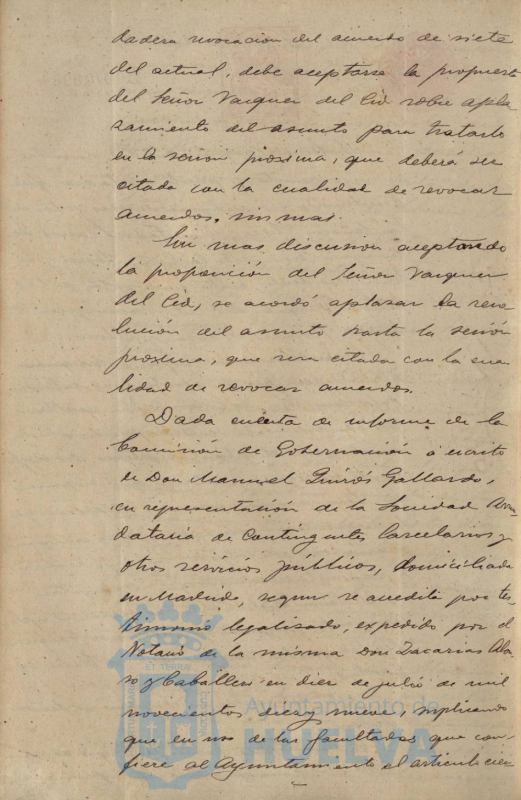 dadera revocacion del acuerdo de siete
del actual, debe aceptarse la propuesta
del Señor Vazquez del Cid sobre apla-
zamiento del asunto para tratarlo
en la sesion proxima, que deberá ser
citada con la cualidad de revocar
acuerdos, sin mas.
Sin mas discusion aceptando
la proposición del Señor Vazquez
del Cid, se acordó aplazar la reso-
lución del asunto hasta la sesión
proxima, que sera citada con la cua-
lidad de revocar acuerdos.
Dada cuenta de informe de la
Comisión de Gobernación á escrito
de Don Manuel Quirós Gallardo,
en representación de la Sociedad Arren-
dataria de Contingentes Carcelarios y
otros servicios públicos, domiciliada
en Madrid, segun se acredita por tes-
timonio legalizado, expedido por el
Notario de la misma Don Zacarias Alon-
so y Caballero en diez de julio de mil
novecientos diez y nueve, suplicando
que en uso de las facultades que con-
fiere al Ayuntamiento el articulo cien
Ayuntamiento de
HUELVA